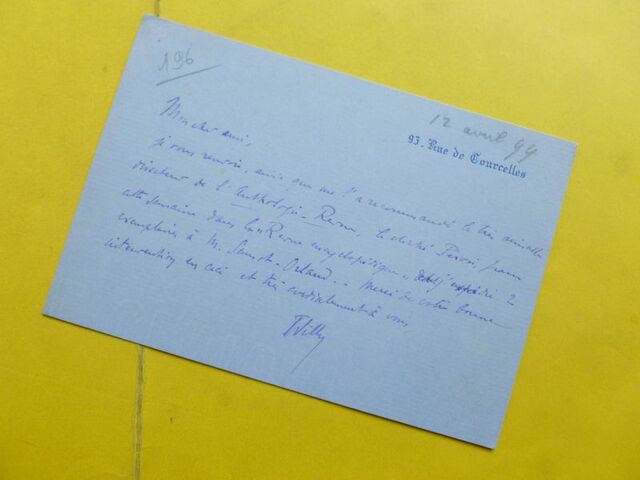 196
12 avril 99
93. Rue de Courcelles
Mon cher ami,
je vous envoie, ainsi que me l'a recommandé le très aimable
directeur de l'Anthologie-Revue, le cliché
cette semaine dans la Revue encyclopédique et j'expédie 2
exemplaires à M. Saint-Orland.. Merci de votre bonne
intervention en ceci et très cordialement à vous
Willy